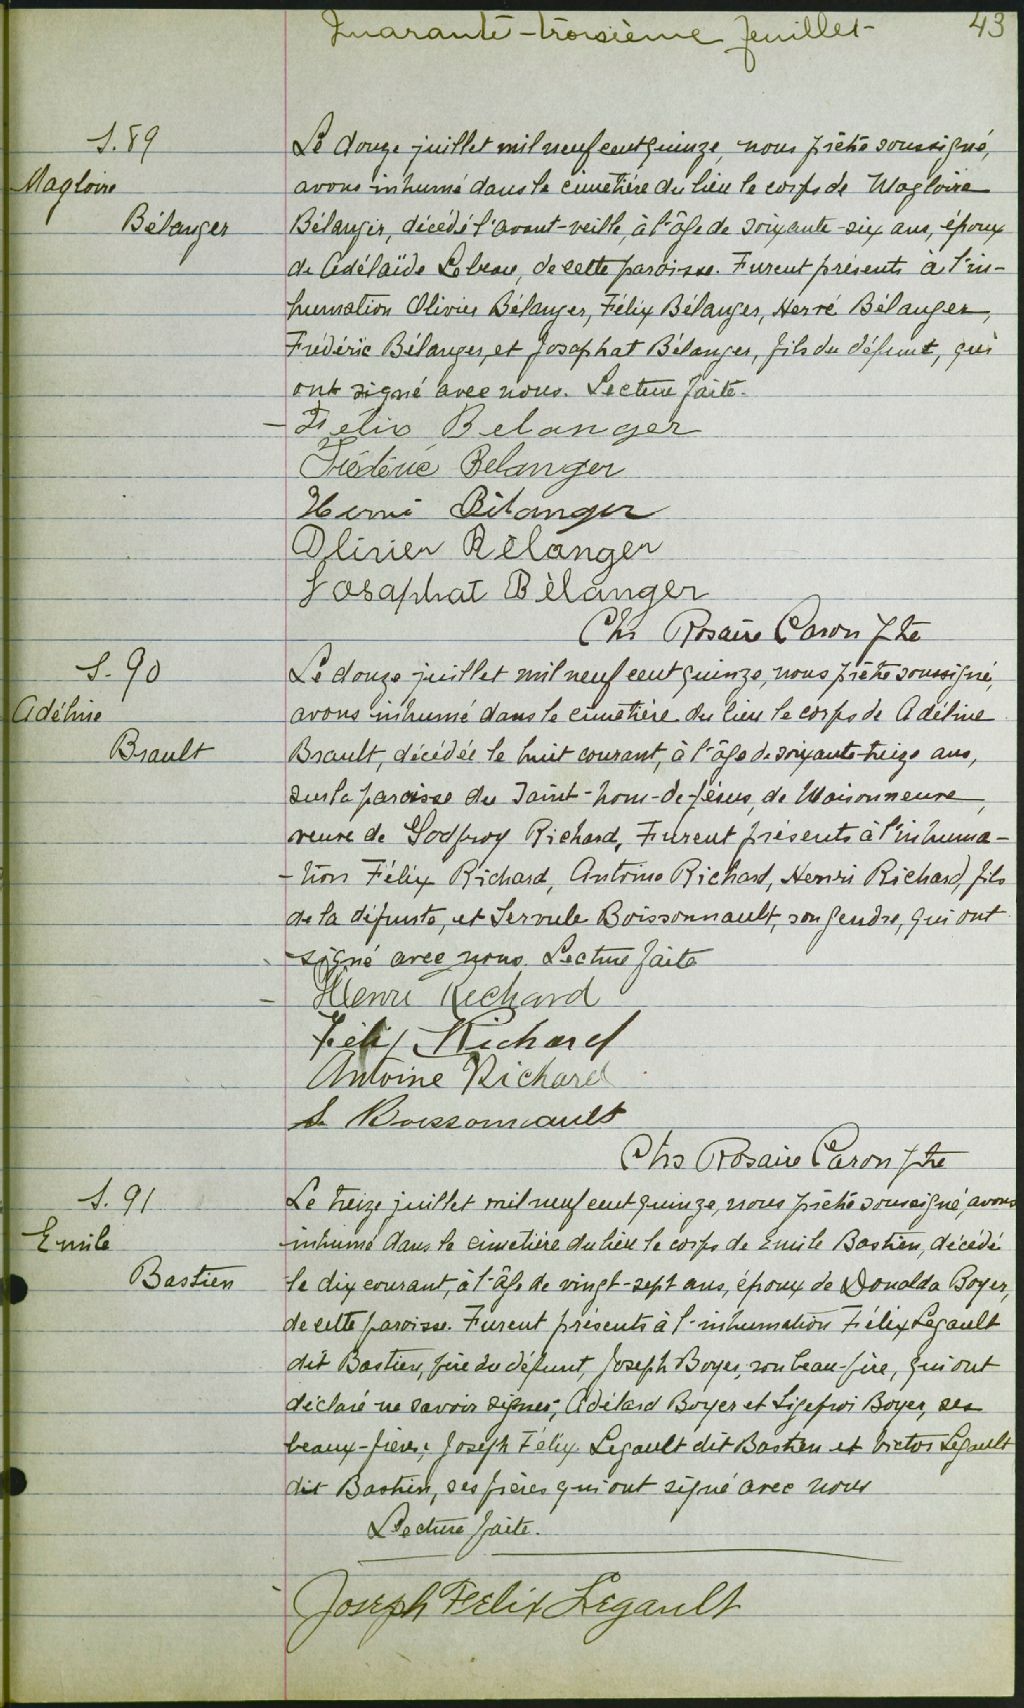 Quarante-troisième feuillet
43
S. 89
Magloire
Bélanger
Le douze juillet mil neuf cent quinze, nous prêtre soussigné,
avons inhumé dans le cimetière du lieu le corps de Magloire
Bélanger, décédé l'avant-veille, à l'âge de soixante-six ans, époux
de Adélaïde Lebeau, de cette paroisse. Furent présents à l'in-
humation Olivier Bélanger, Félix Bélanger, Hervé Bélanger,
Frédéric Bélanger, et Josaphat Bélanger, fils du défunt, qui
ont signé avec nous. Lecture faite.
Félix Belanger
Frédéric Belanger
Hervé Bélanger
Olivier Bélanger
Josaphat Bélanger
Chs Rosaire Caron ptre
S. 90
Adéline
Brault
Le douze juillet mil neuf cent quinze, nous prêtre soussigné,
avons inhumé dans le cimetière du lieu le corps de Adéline
Brault, décédée le huit courant, à l'âge de soixante-treize ans,
sur la paroisse du Saint-Nom-de-Jésus, de Maisonneuve,
veuve de Godfroy Richard, Furent présents à l'inhuma-
-tion Félix Richard, Antoine Richard, Henri Richard, fils
de la défunte, et Servule Boissonnault, son gendre, qui ont
signé avec nous. Lecture faite
Henri Richard
Félix Richard
Antoine Richard
S. Boissonnault
Chs Rosaire Caron ptre
S. 91
Emile
Bastien
Le treize juillet mil neuf cent quinze, nous prêtre soussigné, avons
inhumé dans le cimetière du lieu le corps de Emile Bastien, décédé
le dix courant, à l'âge de vingt-sept ans, époux de Donalda Boyer,
de cette paroisse. Furent présents à l'inhumation Félix Legault
dit Bastien, père du défunt, Joseph Boyer, son beau-père, qui ont
déclaré ne savoir signer; Adélard Boyer et Sigefroi Boyer, ses
beaux-frères; Joseph Félix Legault dit Bastien et Victor Legault
dit Bastien, ses frères qui ont signé avec nous
Lecture faite.
Joseph Felix Legault